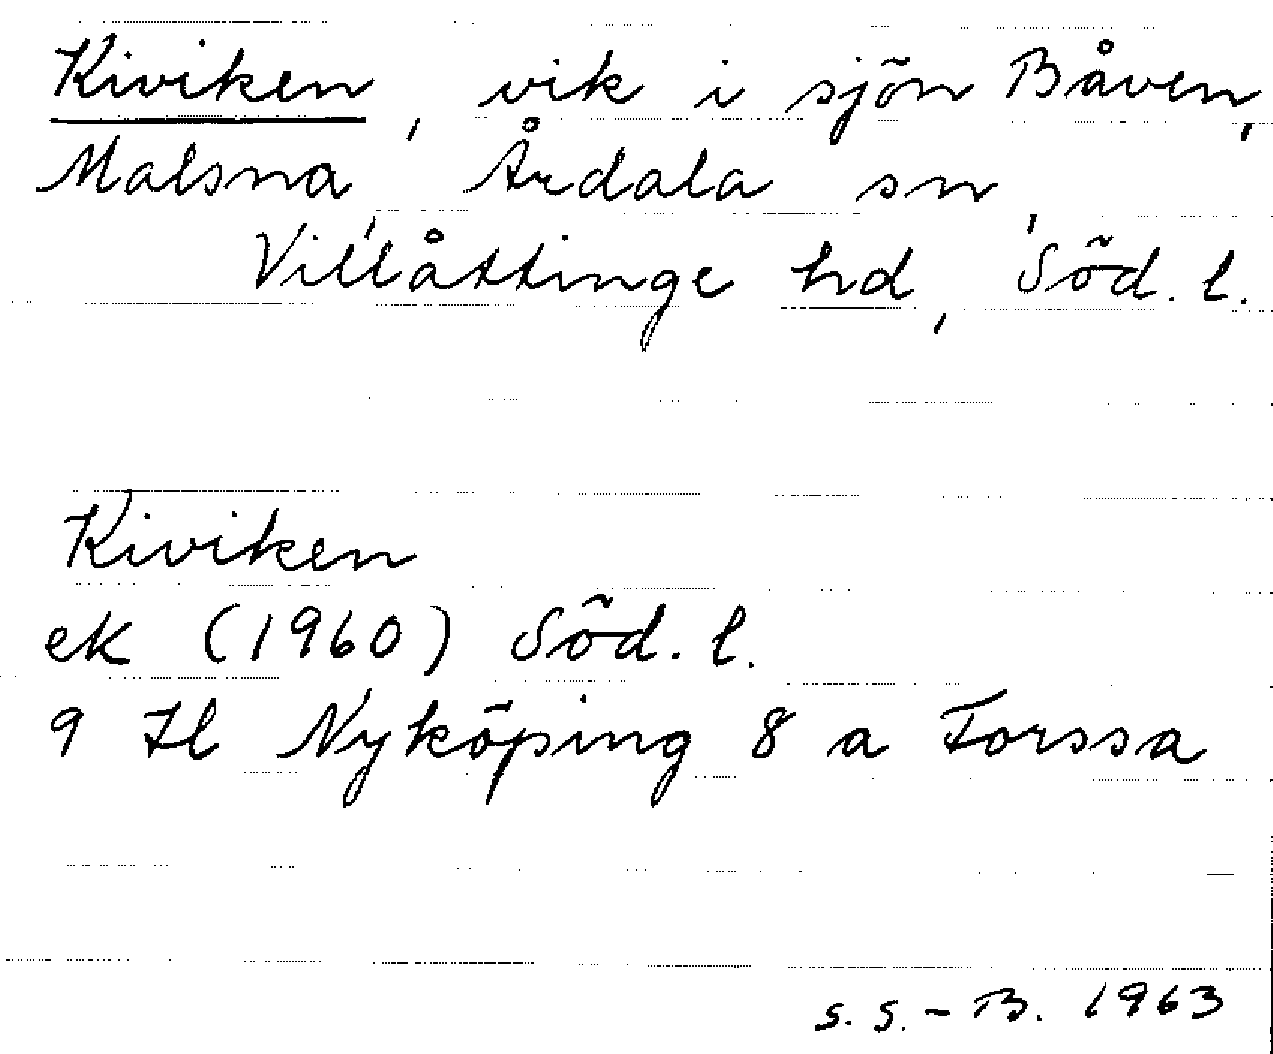 Kiviken, vik i sjön Båven,
Malsna, Årdala sn,
Villåttinge hd, Söd. l.
Kiviken
ek (1960) Söd. l.
9 Hl Nyköping 8 a Forssa
S. S. - B. 1963